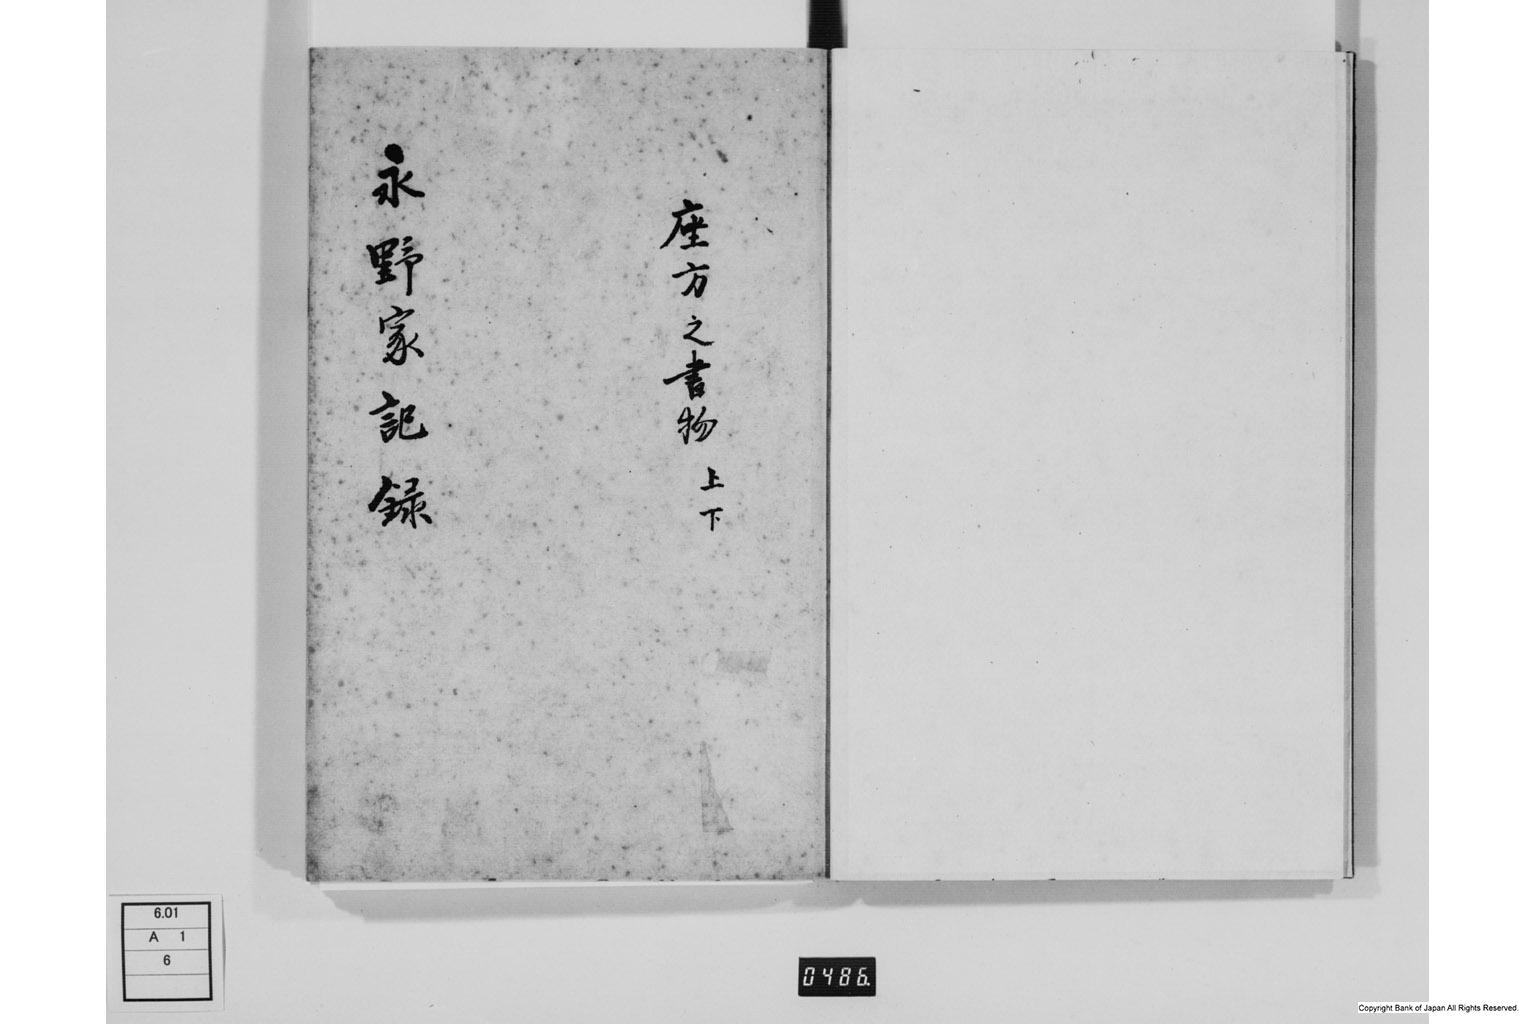 座方之書物 上下
永野家記録
6.01
A 1
6
0486.
Copyright Bank of Japan All Rights Reserved.